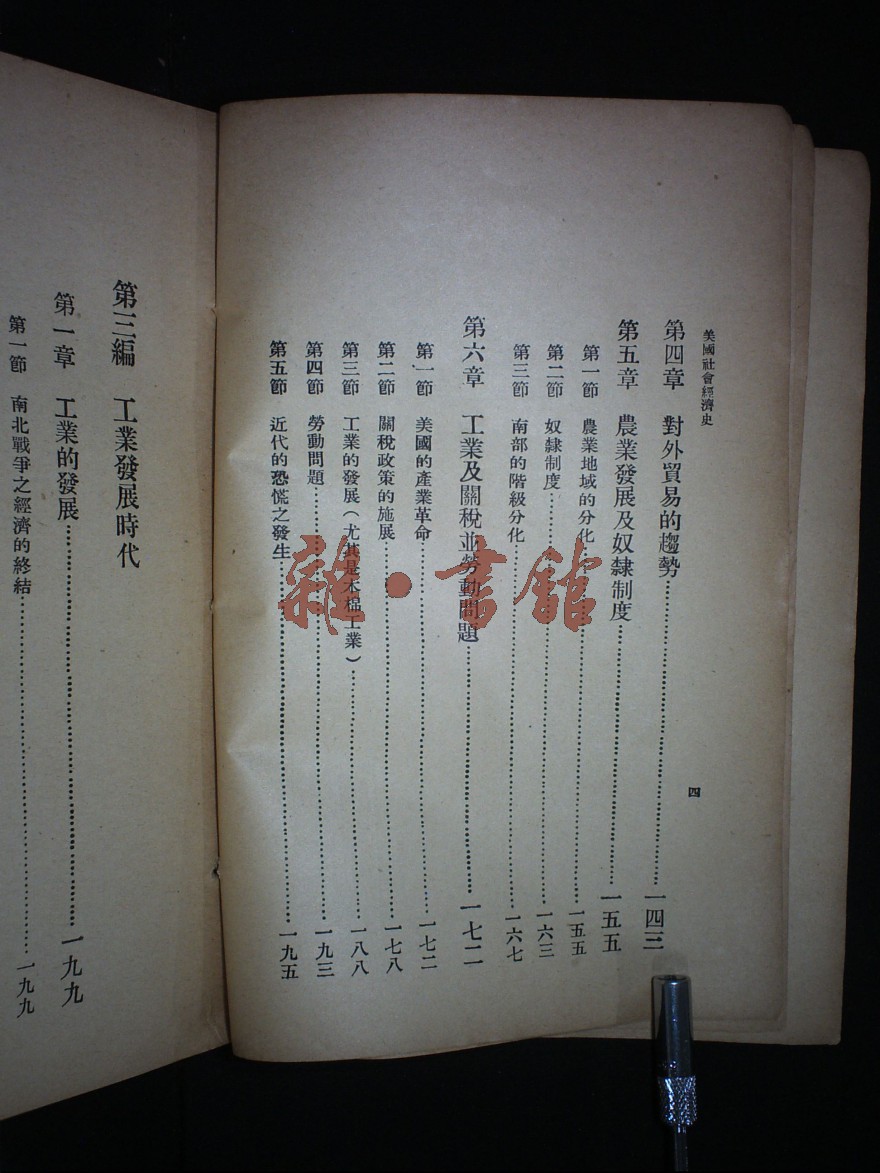 美國社會經濟史
四
第四章 對外貿易的趨勢 一四三
第五章 農業發展及奴隸制度 一五五
第一節 農業地域的分化 一五五
第二節 奴隸制度 一六三
第三節 南部的階級分化 一六七
第六章 工業及關稅並勞動問題 一七二
第一節 美國的產業革命 一七二
第二節 關稅政策的施展 一七八
第三節 工業的發展（尤其是木棉工業） 一八八
第四節 勞動問題 一九三
第五節 近代的恐慌之發生 一九五
第三編 工業發展時代
第一章 工業的發展 一九九
第一節 南北戰爭之經濟的終結 一九九
雜·書館